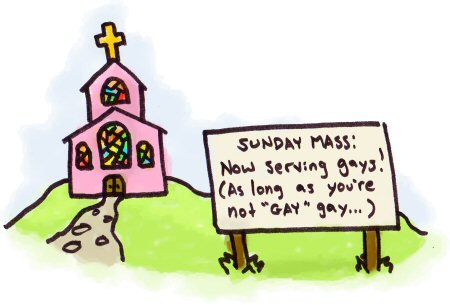 SUNDAY MASS:
Now serving gays!
(As long as you're
not "GAY" gay...)